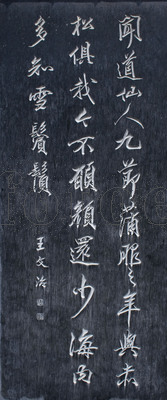 聞道仙人九節蒲服之年與赤
松俱我今不願顏還少海內
多知雪鬢鬚
王文治